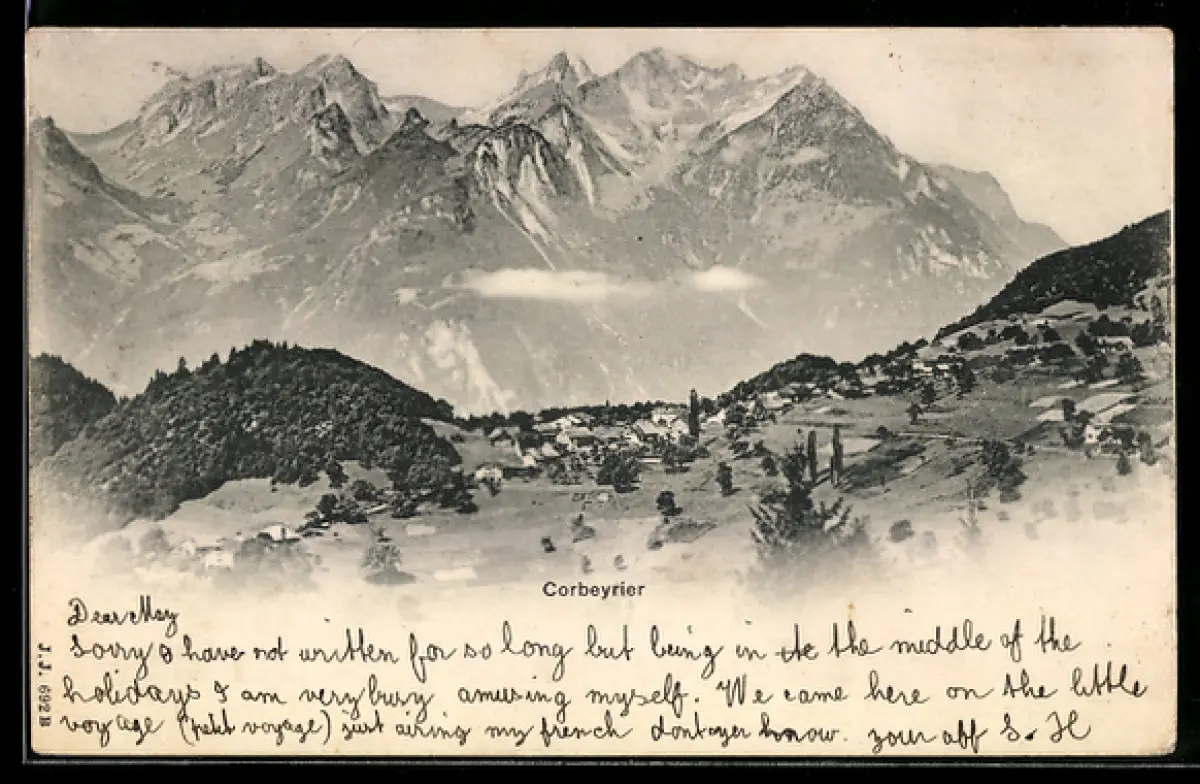 Corbeyrier
Dear May
Sorry I have not written for so long but being in the the middle of the
holidays I am very busy amusing myself. We came here on the little
voyage (petit voyage) just airing my french dont yer know. your aff S. H
J.J. 692 B